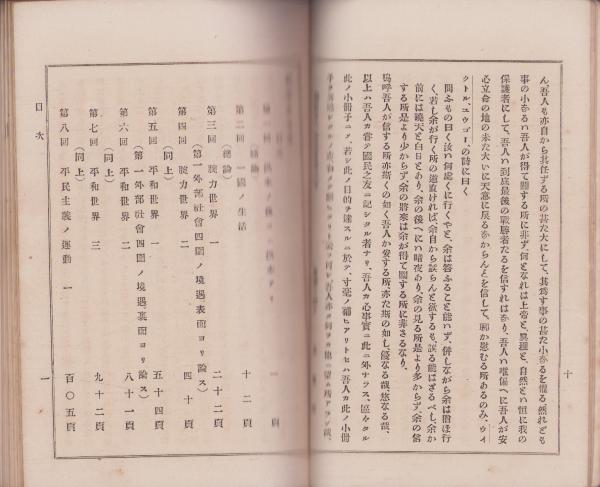 十
ん、吾人も亦自から其任ずる所の甚だ大にして、其爲す事の甚だ小なるを懼る、然れども
事の小なるハ吾人が得て關する所に非ず、何となれは上帝と、眞理と、自然とハ恒に我の
保護者にして、吾人ハ到底最後の戰勝者たるを信すれはなり、吾人ハ唯偏へに吾人が安
心立命の地の未だ大いに天意に戻るなからんことを信して、聊か慰むる所あるのみ、ウイ
クトル、ユウゴー、の詩に曰く
問ふもの曰く汝ハ何處くに行くやと、余は答ふること能ハず、併しながら余は猶ほ行
く、若し余が行く所の道直ければ、余自から誤らんと欲するも、誤る能はざるべし、余か
前には曉天と白日とあり、余の後へにハ暗夜あり、余の見る所是より多からず、余の信
する所是より少からず、余の將來は余が得て關する所に非さるなり、
嗚呼吾人が信する所亦斯くの如く吾人か安する所、亦た斯の如し、優なる哉、悠なる哉、
以上ハ吾人カ嘗テ國民之友ニ記シタル者ナリ、吾人カ心事實ニ此ニ外ナラス、區々タル
此ノ小冊子ニメ、若シ此ノ目的ヲ達スルニ於テ、寸毫ノ補ヒアリトセハ吾人カ此ノ小冊
目次
第二回 一國ノ生活 十二頁
(總論)
第三回 腕力世界 一 二十二頁
(第一外部社會四圍ノ境遇表面ヨリ論ス)
第四回 腕力世界 二 四十頁
(同上)
第五回 平和世界 一 五十四頁
(第一外部社會四圍ノ境遇裏面ヨリ論ス)
第六回 平和世界 二 八十一頁
(同上)
第七回 平和世界 三 九十二頁
(同上)
第八回 平民主義ノ運動 一 百〇五頁
一